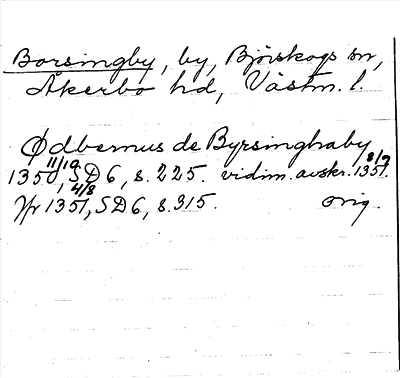 Borsingby, by, Björskogs sn,
Åkerbo hd, Västm. l.
Ødbernus de Byrsinghaby
1350 11/10, SD 6, s. 225. vidim. avskr. 1351 8/9.
1351 4/8, SD 6, s. 315. orig.